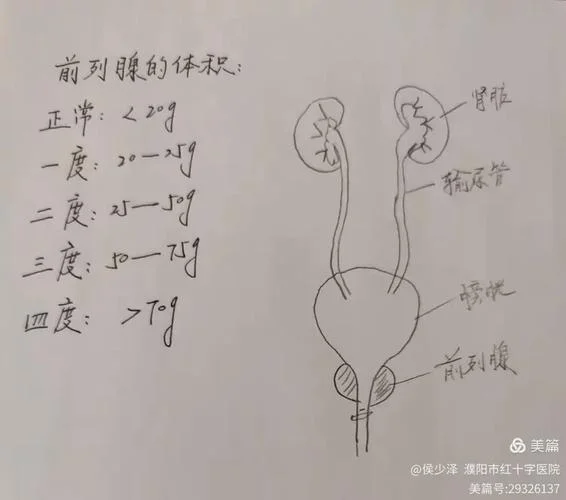 前列腺的体积:
正常: <20g
一度: 20—25g
二度: 25—50g
三度: 50—75g
四度: >70g
肾脏
输尿管
膀胱
前列腺
美篇
@侯少泽 濮阳市红十字医院
美篇号:29326137